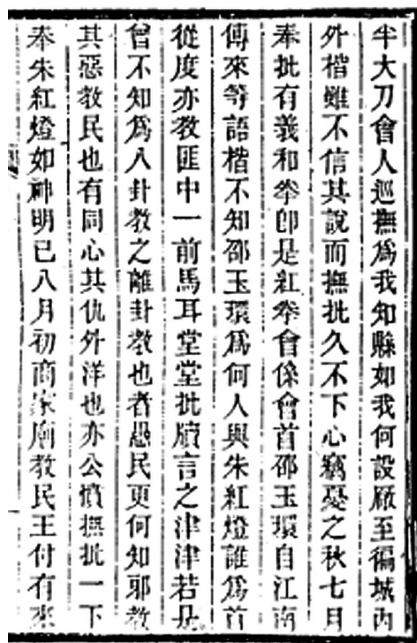 半大刀會人巡撫為我知縣如我何設廠至徧城內
外楷雖不信其說而撫批久不下心竊憂之秋七月
奉批有義和拳卽是紅拳會係會首邵玉環自江南
傳來等語楷不知邵玉環為何人與朱紅燈誰為首
從度亦教匪中一前馬耳堂堂批牘言之津津若毋
曾不知為八卦教之離卦教也者愚民更何知邪教
其惡教民也有同心其仇外洋也亦公憤撫批一下
奉朱紅燈如神明已八月初商家廟教民王付有來